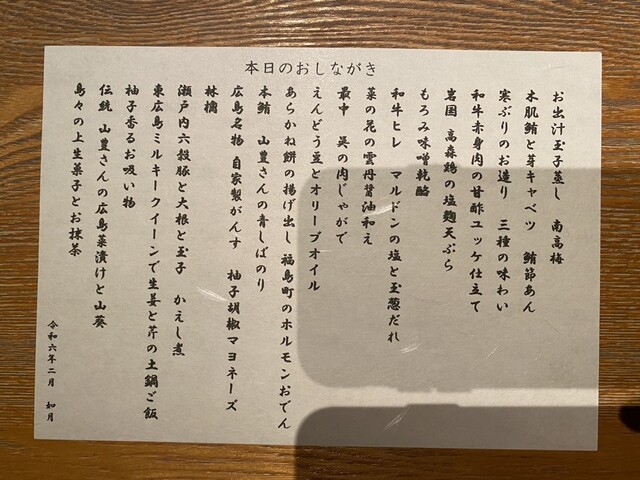 本日のおしながき
お出汁玉子蒸し　南高梅
木肌鮪と芽キャベツ　鮪節あん
寒ぶりのお造り　三種の味わい
和牛赤身肉の甘酢ユッケ仕立て
岩国　高森鶏の塩麹天ぷら
もろみ味噌乾酪
和牛ヒレ　マルドンの塩と玉葱だれ
菜の花の雲丹醤油和え
最中　呉の肉じゃがで
えんどう豆とオリーブオイル
あらかね餅の揚げ出し　福島町のホルモンおでん
本鮪　山豊さんの青しばのり
広島名物　自家製がんす　柚子胡椒マヨネーズ
林檎
瀬戸内六穀豚と大根と玉子　かえし煮
東広島ミルキークイーンで生姜と芹の土鍋ご飯
柚子香るお吸い物
伝統　山豊さんの広島菜漬けと山葵
島々の上生菓子とお抹茶
令和六年二月　如月